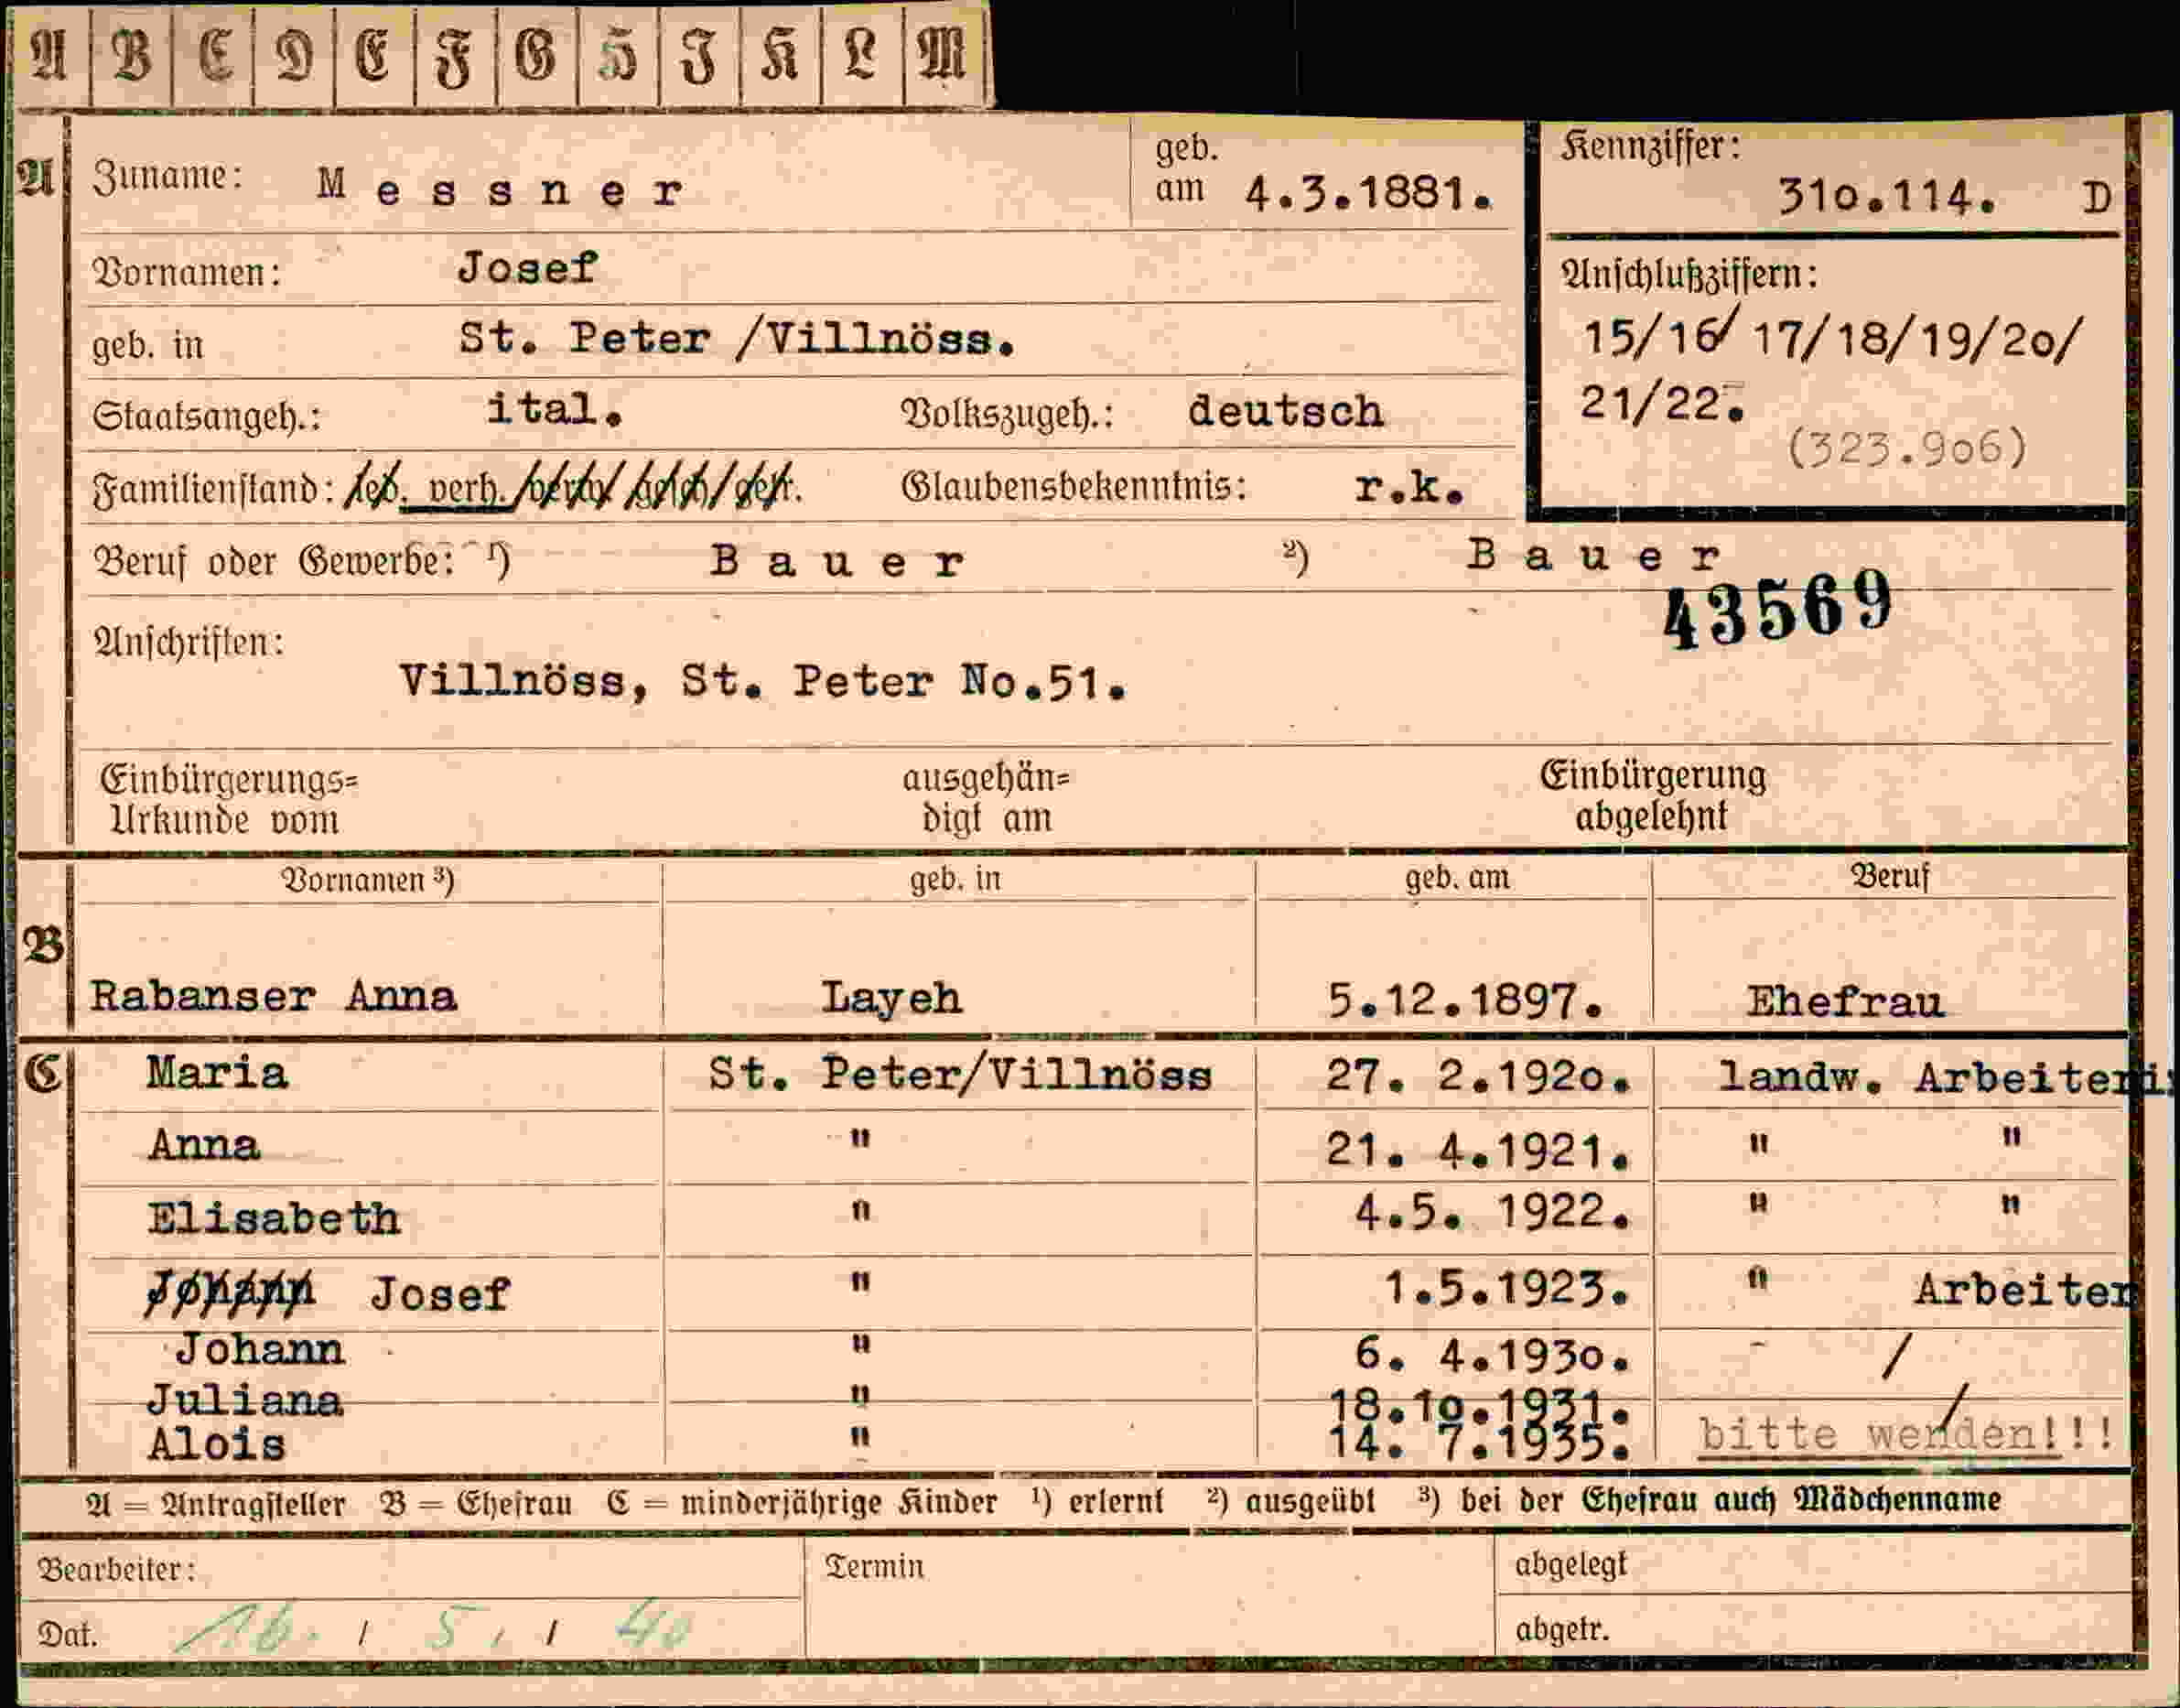 A B C D E F G H I K L M
A Zuname: Messner geb. am 4.3.1881. Kennziffer: 310.114. D
Vornamen: Josef Anschlußziffern:
geb. in St. Peter /Villnöss. 15/16/17/18/19/20/
Staatsangeh.: ital. Volkszugeh.: deutsch 21/22.
(323.906)
Familienstand: led. verh. Glaubensbekenntnis: r.k.
Beruf oder Gewerbe: 1) Bauer 2) Bauer
43569
Anschriften:
Villnöss, St. Peter No.51.
Einbürgerungs= ausgehän= Einbürgerung
Urkunde vom digt am abgelehnt
Vornamen 3) geb. in geb. am Beruf
B
Rabanser Anna Layeh 5.12.1897. Ehefrau
C Maria St. Peter/Villnöss 27. 2.1920. landw. Arbeiteri
Anna " 21. 4.1921. " "
Elisabeth " 4.5. 1922. " "
Johann Josef " 1.5.1923. " Arbeiter
Johann " 6. 4.1930. /
Juliana " 18.10.1931. /
Alois " 14. 7.1935. bitte wenden!!!
A = Antragsteller B = Ehefrau C = minderjährige Kinder 1) erlernt 2) ausgeübt 3) bei der Ehefrau auch Mädchenname
Bearbeiter: Termin abgelegt
Dat. 16. / 5. / 40 abgetr.